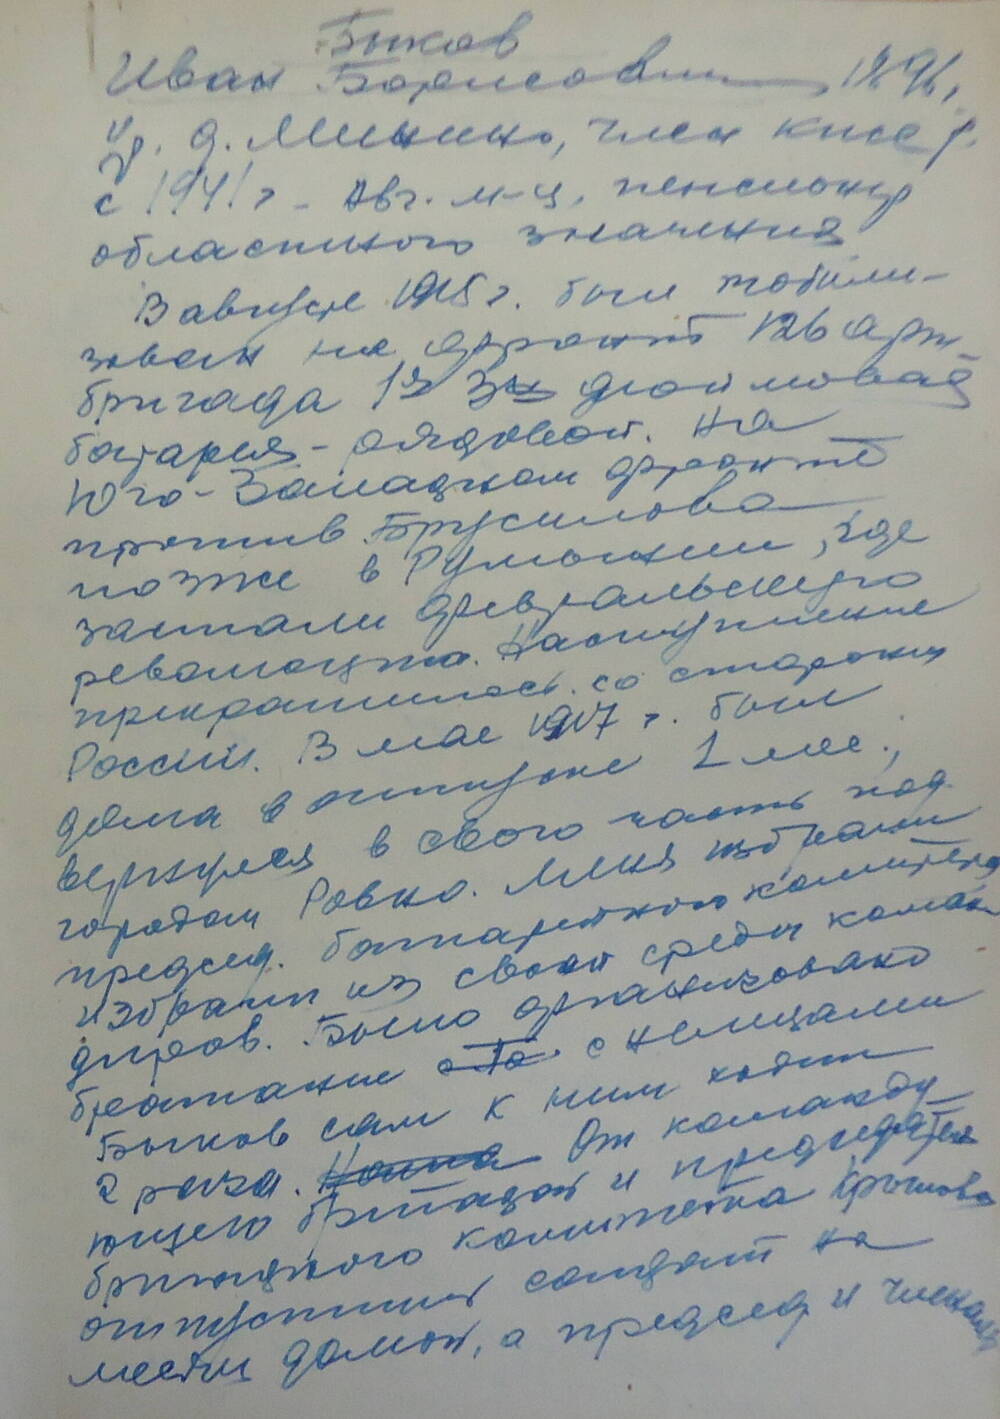 Быков
Иван Борисович 1896,
ур. д. Минино, член КПСС
с 1941 г - Авг. м-ц, пенсионер
областного значения
В августе 1915 г. был мобили-
зован на фронт 126 арт
бригада 1я 3х дюймовая
батарея - рядовой. На
Юго-Западном фронте
против Брусилова
позже в Румынии, где
застали февральскую
революцию. Наступление
прекратилось со стороны
России. В мае 1917 г. был
дома в отпуске 1 мес.,
вернулся в свою часть под
городом Ровно. Меня избрали
председ. батарейного комитета
избрали из своей среды коман
диров. Было организовано
братание с немцами
Быков сам к ним ходил
2 раза. От команду
ющего бригадой и председателя
бригадного комитета Крылова
отпустить солдат на
места домой, а председ и членам